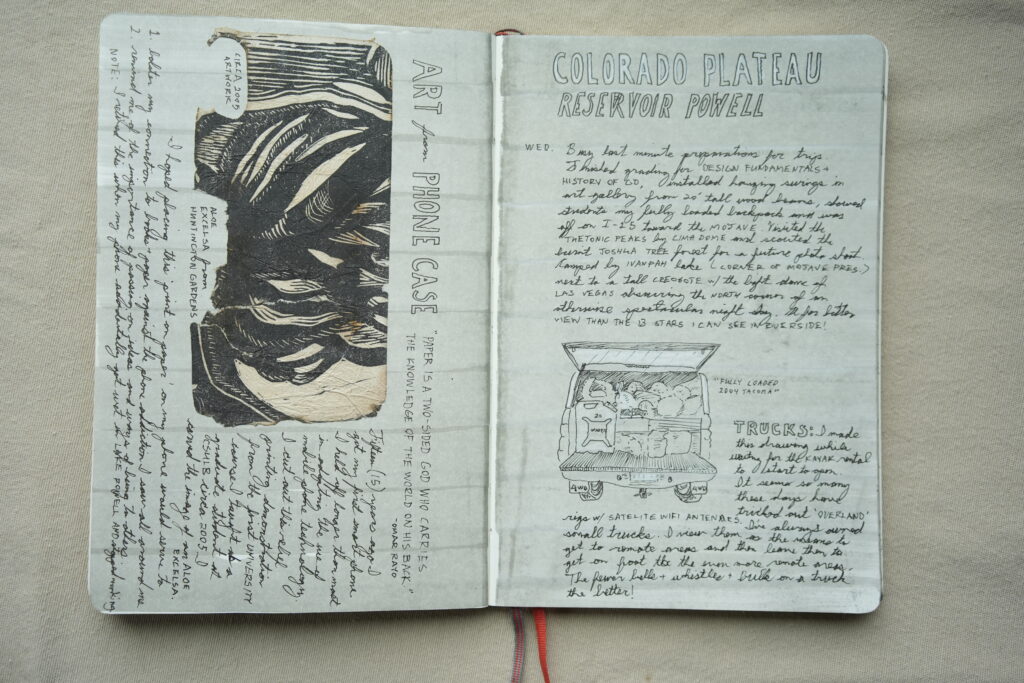 ART from PHONE CASE
"PAPER IS A TWO-SIDED GOD WHO CARRIES
THE KNOWLEDGE OF THE WORLD ON HIS BACK."
"OMAR RAYO
Fifteen (15) years ago I
got my first smart phone
I held off longer than most
in adopting the use of
mobile phone technology.
I cut out the relief
printing demonstration
from the first UNIVERSITY
course I taught as a
graduate student at
CSULB circa 2005. I
carved the image of an ALOE
EXCELSA.
CIRCA 2005
ARTWORK
ALOE
EXCELSA from
HUNTINGTON GARDENS
I hoped placing this 'print on paper' on my phone would serve to
1. bolster my connection to books/paper against the phone addiction I saw all around me
2. remind me of the importance of passing on ideas and ways of being to others.
NOTE: I retired this when my phone accidentally got wet in LAKE POWELL AND stopped working
COLORADO PLATEAU
RESERVOIR POWELL
WED. Busy last minute preparations for trip.
Finished grading for "DESIGN FUNDAMENTALS +
HISTORY OF GD, installed hanging swings in
art gallery from 20' tall wood beams, showed
students my fully loaded backpack and was
off on I-15 toward the MOJAVE. Visited the
TUETONIC PEAKS by CIMA DOME and scouted the
burnt JOSHUA TREE forest for a future photo shoot.
Camped by IVANPAH Lake (CORNER OF MOJAVE PRES.)
next to a tall CREOSOTE w/ the light dome of
LAS VEGAS obscuring the NORTH corner of an
otherwise spectacular night sky. A far better
VIEW THAN THE 13 STARS I CAN SEE IN RIVERSIDE!
"FULLY LOADED
2004 TACOMA"
4WD
4WD
TRUCKS: I made
this drawing while
waiting for the KAYAK rental
to start to open.
It seems so many
these days have
tricked out 'OVERLAND'
rigs w/ SATELITE WIFI ANTENAES. I've always owned
small trucks. I view them as the means to
get to remote areas and then leave them to
get on foot to the even more remote areas.
The fewer bells + whistles + bulk on a truck
the better!